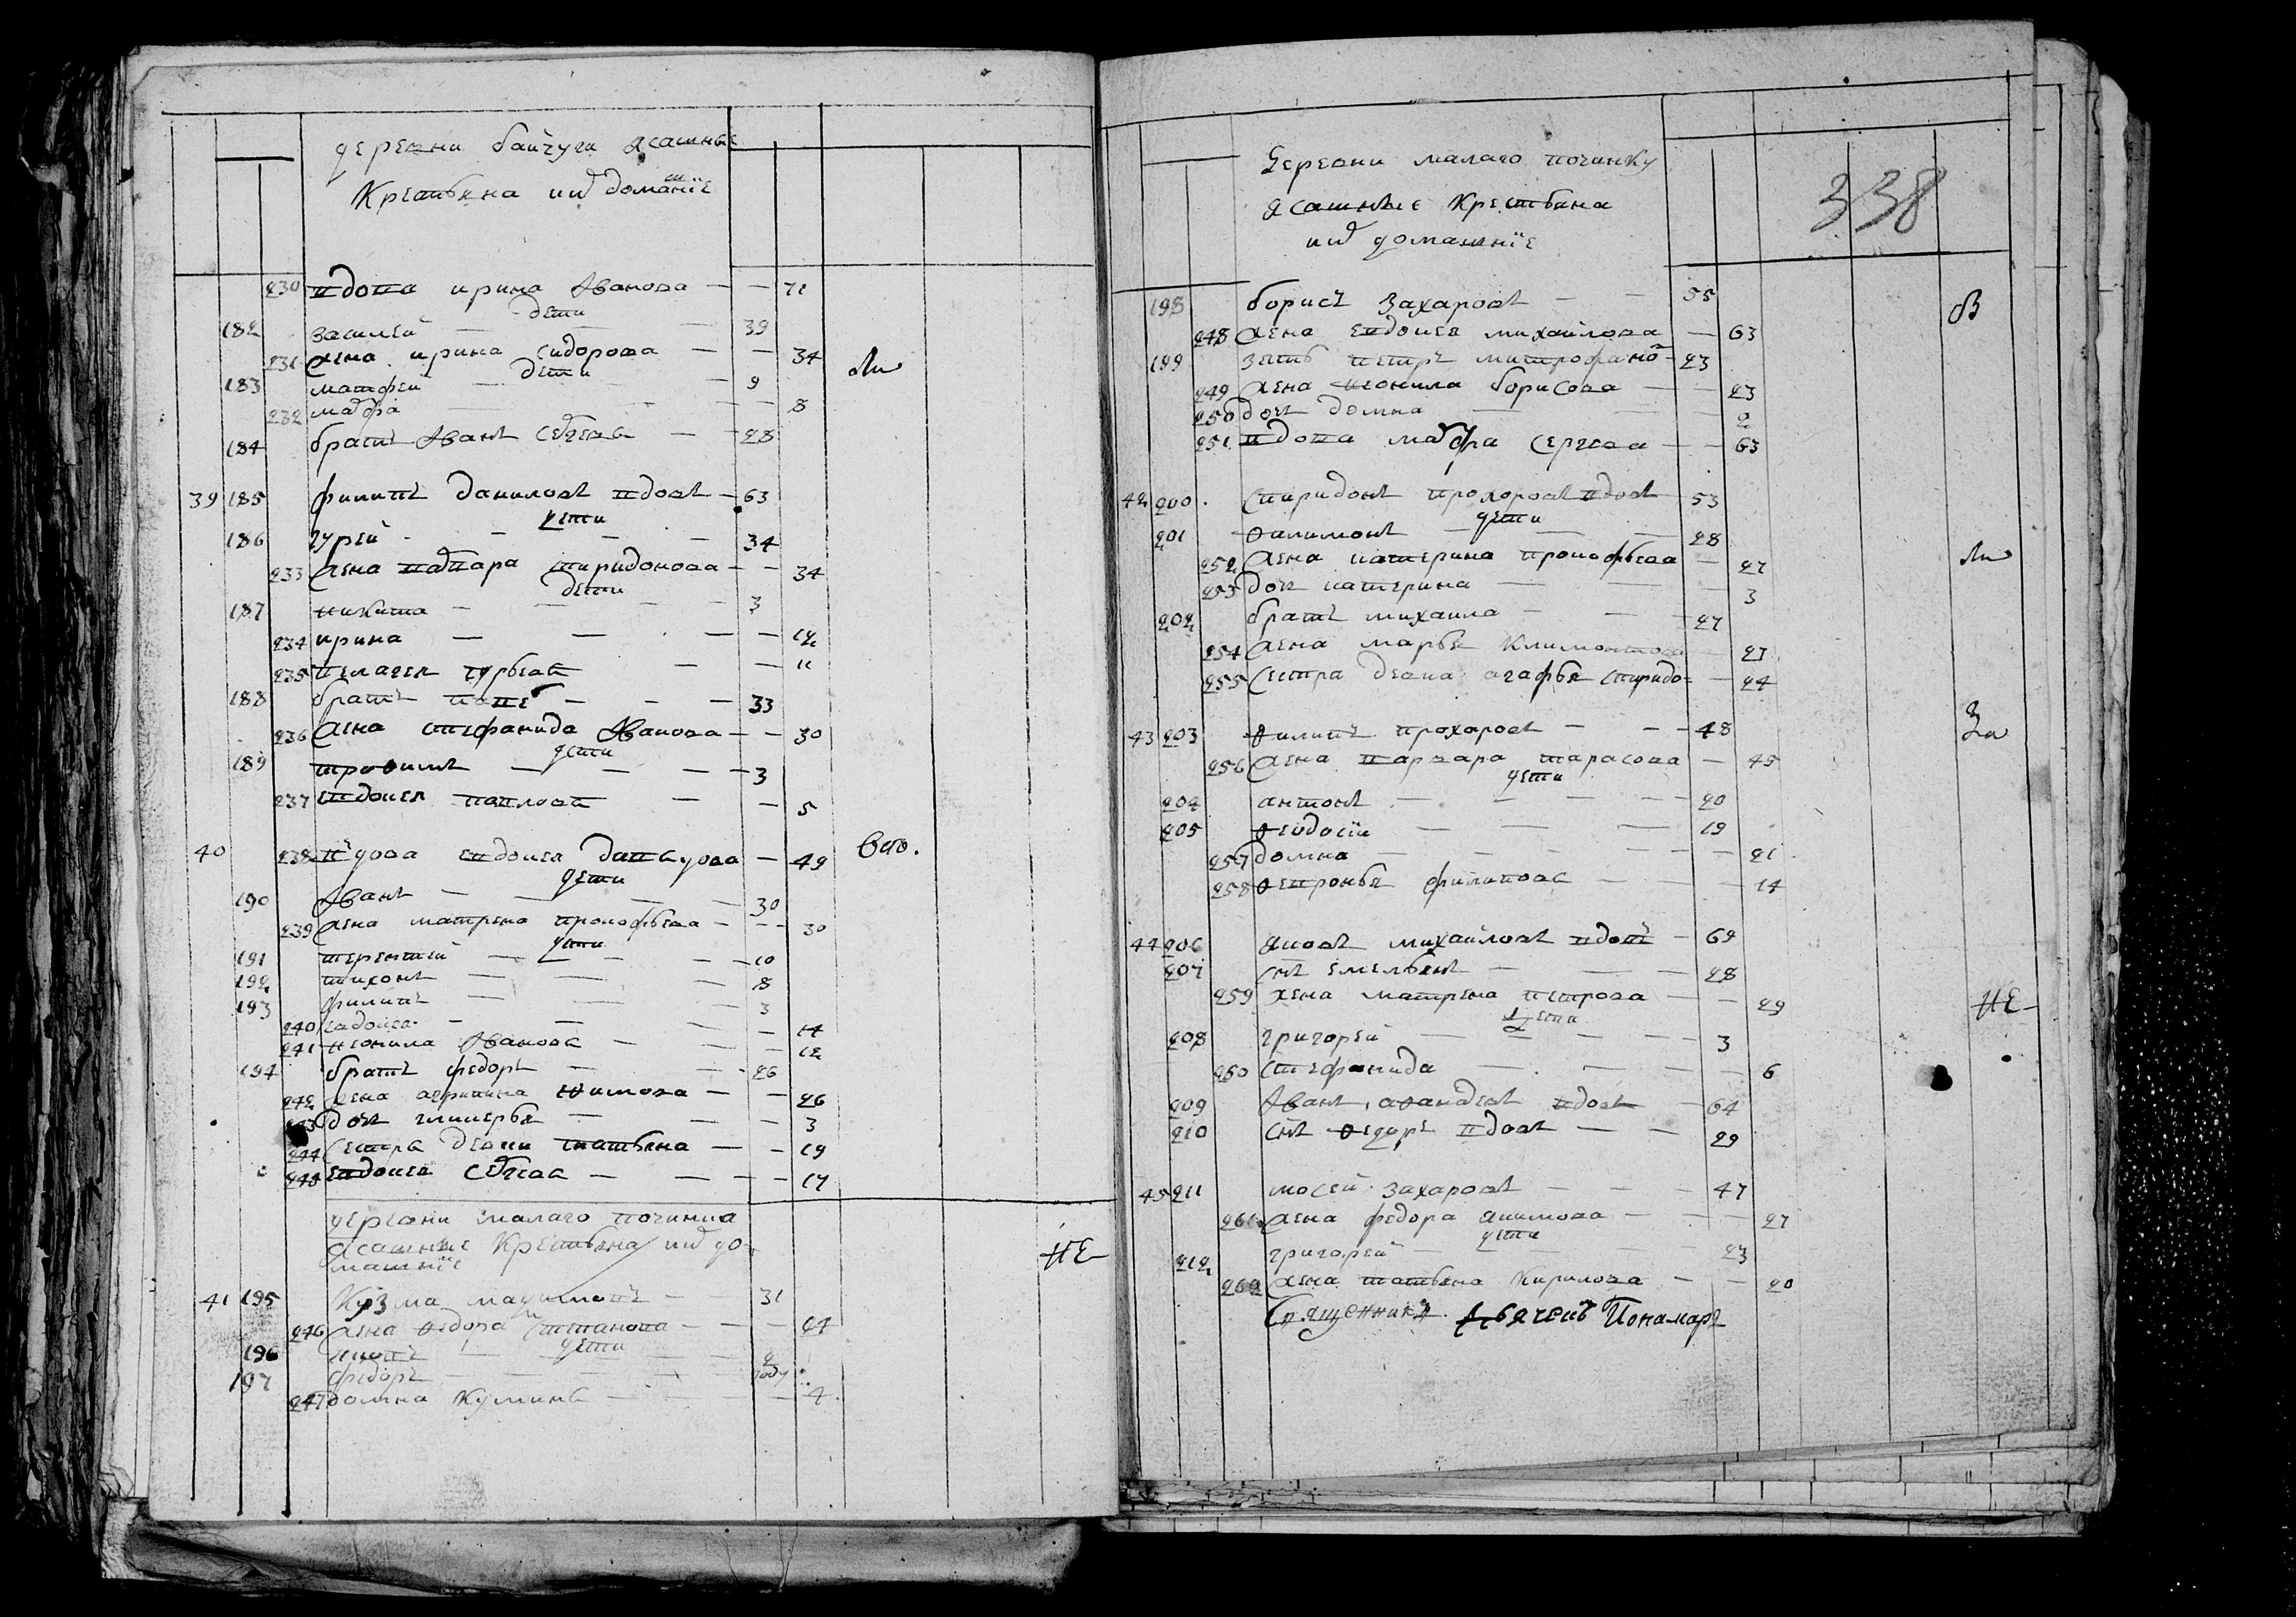 деревни байчуги ясашные
крестьяна ихъ доманшїе
230 вдова ирина Іванова — — 71
дети
182 василей — — — 39
231 жена ирина сидорова — — 34
дети
183 матфей — — 9
232 мавра — — — 8
184 братъ Іванъ — 28
39 185 филипъ даниловъ вдовъ — 63
дети
186 гурей — — — 34
233 жена варвара спиридонова — — 34
дети
187 никита — — — 3
234 ирина — — — — 12
235 пелагея гурьева — — 11
188 братъ — — — 33
236 жена стефанида Іванова — — 30
дети
189 трофимъ — — — 3
237 евдокея павлова — — 5
40 238 вдова евдокея давыдова — 49
дети
190 Іванъ — — — 30
239 жена матрена прокофьева — — 30
дети
191 терентей — — — 10
192 тихонъ — — — 8
193 филипъ — — — 3
240 евдокея — — — 14
241 неонила Іванова — — — 12
194 братъ федоръ — — 26
242 жена агрипина — — 26
243 дочь гликерья — — 3
244 сестра девки татьяна — — 19
245 евдокея — — — 17
деревни малаго починка
ясашные крестьяна ихъ до-
машнїе
не
41 195 Кузма — 31
246 жена федора степанова — — 24
дети
196 — — — 2
197 федоръ — — — году
247 домна Кузмина — — 4
деревни малаго починку
ясашные крестьяна
ихъ домашнїе
338
198 борисъ захаровъ — — 55
248 жена евдокея михайлова — 63
199 зеть петръ митрофано 23
249 жена неонила борисова — — 23
250 дочь домна — — — 2
251 вдова мавра сергева — — 63
42 200 спиридонъ прохоровъ вдовъ 53
дети
201 филимонъ — — 28
252 жена катерина прокофьева — 27
253 дочь катерина — — — 3
202 братъ михаила — — — 27
254 жена марья климонтова — 23
255 сестра девка агафья спиридо= — 24
43 203 филипъ прохаровъ — — — 48
256 жена варвара тарасова — 45
дети
204 антонъ — — — — 20
205 феодосїи — — — 19
257 домна — — — — — 21
258 фетронья филипова — — — 14
44 206 яковъ михайловъ вдовъ — 69
207 снъ емельянъ — — — 28
259 жена матрена петрова — — 29
дети
не
208 григорей — — — — 3
260 стефанида — — — — 6
209 Іванъ афанасевъ вдовъ — 64
210 снъ федоръ вдовъ — — 29
45 211 мосей захаровъ — — — 47
261 жена федора якимова — — — 27
дети
212 григорей — — 23
262 жена татьяна Кирилова — — 20
Священникъ Дьячекъ Понамарь